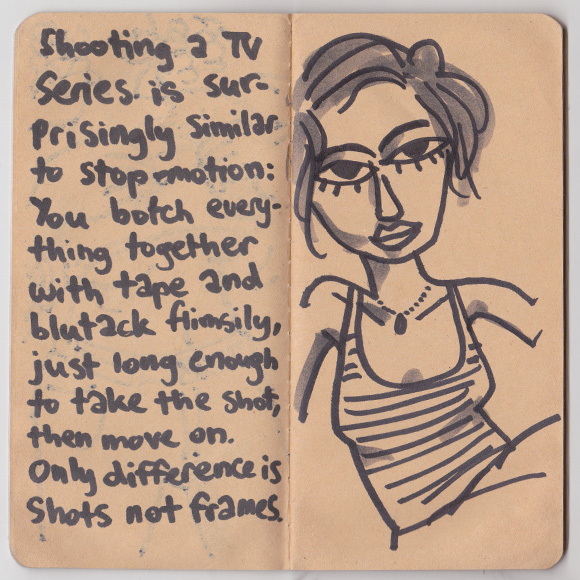 Shooting a TV
Series. is sur-
prisingly similar
to stop-motion:
You botch every-
thing together
with tape and
blutack flimsily,
just long enough
to take the shot,
then move on.
Only difference is
shots not frames.